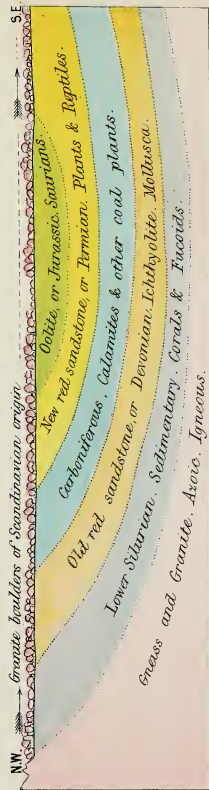 N.W.
Granite boulders of Scandinavian origin
S.E
Oolite, or Jurassic. Saurians.
New red sandstone, or Permian. Plants & Reptiles.
Carboniferous. Calamites & other coal plants.
Old red sandstone, or Devonian. Ichthyolite. Mollusca.
Lower Silurian. Sedimentary. Corals & Fucoids.
Gneiss and Granite. Azoic. Igneous.